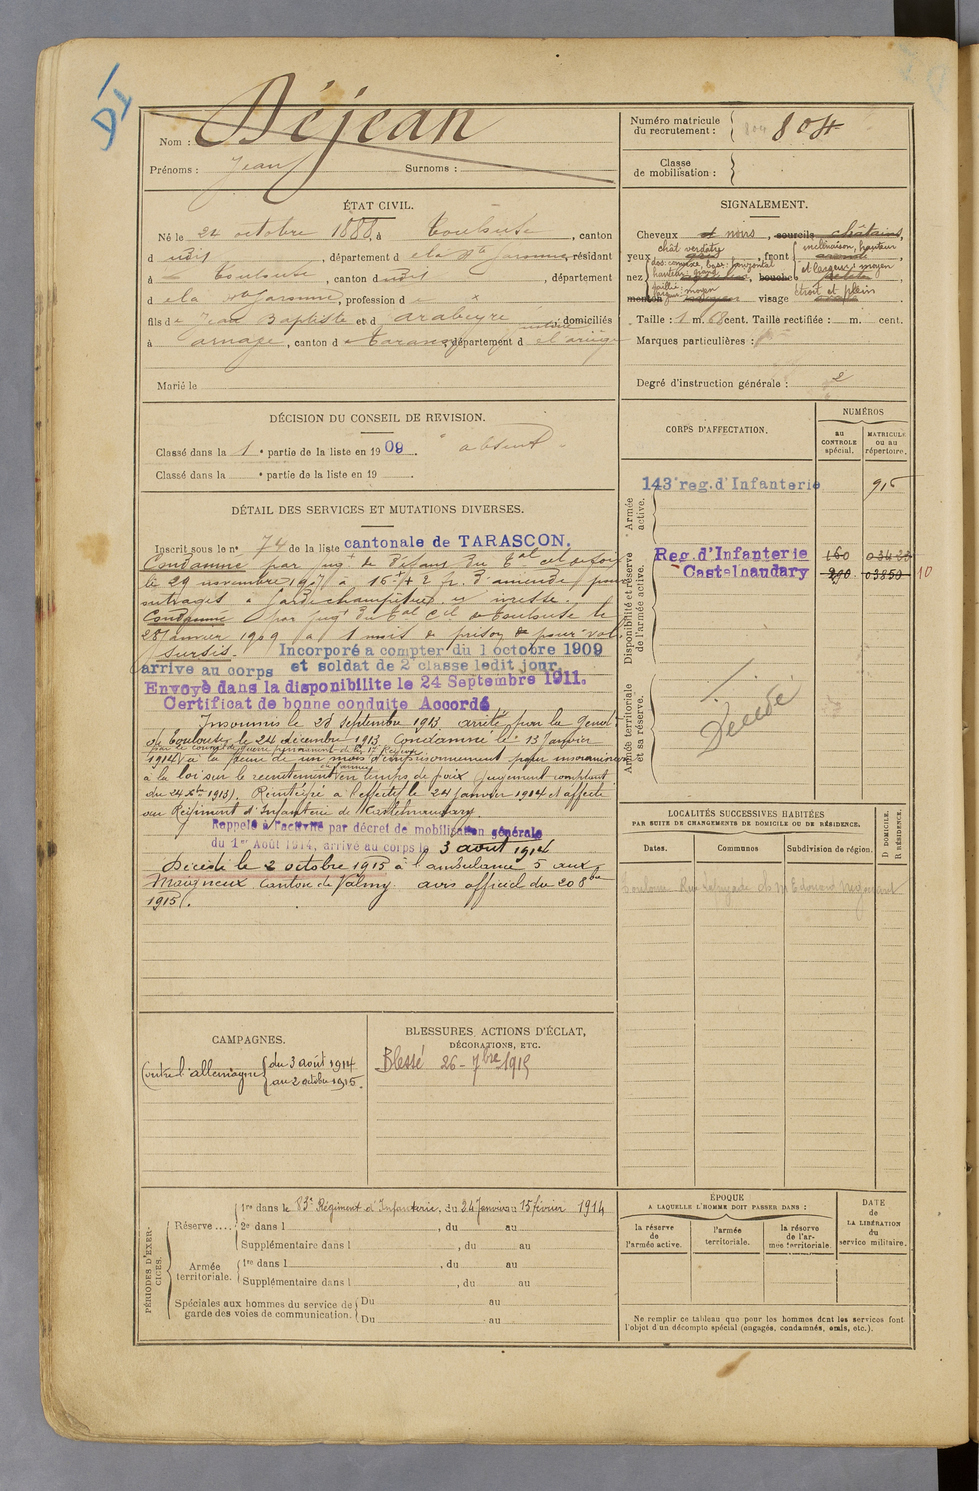 DI
Nom : Déjean
Prénoms : Jean Surnoms :
Numéro matricule
du recrutement : 804
Classe
de mobilisation :
ÉTAT CIVIL.
Né le 24 octobre 1888, à Toulouse, canton
d udit, département d e la Hte Garonne, résidant
à Toulouse, canton d udit, département
d e la Hte Garonne, profession d e x
fils d e Jean Baptiste et d Arabeyre domiciliés
à Arnage, canton d e Tarascon, département d e l'ariège
Marié le
SIGNALEMENT.
Cheveux noirs, sourcils châtains,
yeux chât verdâtre, front inclinaison, hauteur
et largeur: moyen
nez dos: convexe, base: horizontal
hauteur: grand, bouche
saillie: moyen
menton visage étroit et plein
Taille : 1 m. 68 cent. Taille rectifiée : m. cent.
Marques particulières :
Degré d'instruction générale : 2
DÉCISION DU CONSEIL DE REVISION.
Classé dans la 1e partie de la liste en 1909. "absent"
Classé dans la e partie de la liste en 19 .
CORPS D'AFFECTATION.
NUMÉROS
au
CONTROLE
spécial.
MATRICULE
ou au
répertoire.
Armée
active.
143e reg. d'Infanterie 915
Disponibilité et réserve
de l'armée active.
Reg. d'Infanterie 160
Castelnaudary 290 03850 10
Armée territoriale
et sa réserve.
Décédé
DÉTAIL DES SERVICES ET MUTATIONS DIVERSES.
Inscrit sous le no 74 de la liste cantonale de TARASCON.
Condamné par jugt de
le 29 novembre 1907 à 16 f + 2 f. d'amende pour
outrages à garde champêtre et ivresse.
Condamné par jugt du Tal Cel de Toulouse le
28 Janvier 1909 à 1 mois de prison pour vol
sursis. Incorporé a compter du 1 octobre 1909
arrive au corps et soldat de 2e classe ledit jour.
Envoyé dans la disponibilite le 24 Septembre 1911.
Certificat de bonne conduite Accordé
Insoumis le 28 septembre 1913 arrêté par la Gend.
de Toulouse le 24 décembre 1913. Condamné le 13 Janvier
par le conseil de guerre permanent de la 17e Région
1914 à la peine de un mois d'emprisonnement pour insoumission
à la loi sur le recrutement de l'armée en temps de paix (jugement comptant
du 24 Xbre 1913). Réintégré à l'effectif le 24 Janvier 1914 et affecté
au Régiment d'Infanterie de Castelnaudary.
Rappelé à l'activité par décret de mobilisation générale
du 1er Août 1914, arrivé au corps le 3 août 1914
Décédé le 2 octobre 1915 à l'ambulance 5 aux
Maigneux Canton de Valmy. avis officiel du 20 8bre
1915.
LOCALITÉS SUCCESSIVES HABITÉES
PAR SUITE DE CHANGEMENTS DE DOMICILE OU DE RÉSIDENCE.
Dates. Communes Subdivision de région.
D DOMICILE.
R RÉSIDENCE.
Toulouse Rue
CAMPAGNES.
Contre l'allemagne du 3 août 1914
au 2 octobre 1915.
BLESSURES, ACTIONS D'ÉCLAT,
DÉCORATIONS, ETC.
Blessé 26 - 7bre 1915
PÉRIODES D'EXERCICES.
Réserve .... 1re dans le 83e Régiment d'Infanterie, du 24 Janvier au 15 février 1914
2e dans l , du au
Supplémentaire dans l , du au
Armée
territoriale. 1re dans l , du au
Supplémentaire dans l , du au
Spéciales aux hommes du service de
garde des voies de communication. Du au
Du au
ÉPOQUE
A LAQUELLE L'HOMME DOIT PASSER DANS :
la réserve
de
l'armée active.
l'armée
territoriale.
la réserve
de l'ar-
mée territoriale.
DATE
de
LA LIBÉRATION
du
service militaire.
Ne remplir ce tableau que pour les hommes dont les services font
l'objet d'un décompte spécial (engagés, condamnés, omis, etc.).